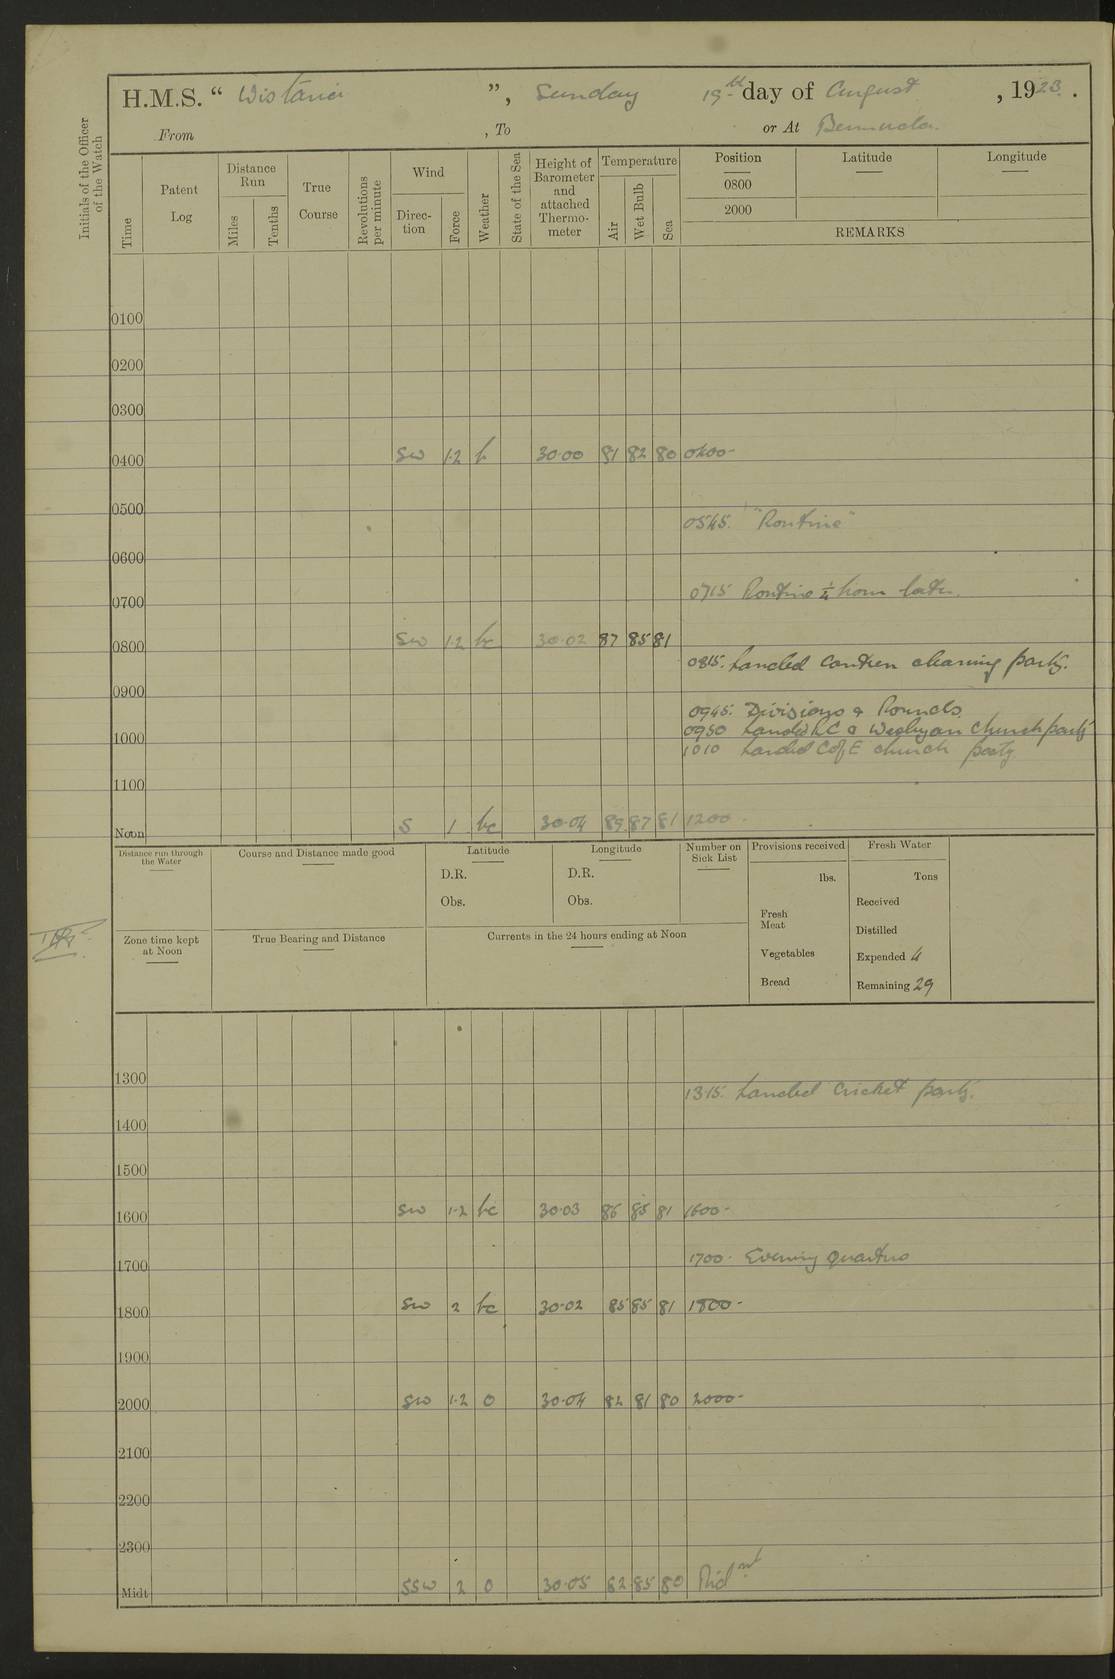 H.M.S. “ Wistaria ”, Sunday 19th day of August, 1923.
From , To or At Bermuda.
Initials of the Officer of the Watch
Time
Patent Log
Distance Run
Miles
Tenths
True Course
Revolutions per minute
Wind
Direction
Force
Weather
State of the Sea
Height of Barometer and attached Thermometer
Temperature
Air
Wet Bulb
Sea
Position
0800
2000
Latitude
Longitude
REMARKS
0100
0200
0300
0400 SW 1·2 b 30·00 81 82 80 0400-
0500
0545. "Routine"
0600
0715 Routine ½ hour later.
0700
0800 SW 1·2 bc 30·02 87 85 81
0815. Landed canteen cleaning party.
0900
0945. Divisions & Rounds
0950 Landed RC & Wesleyan Church party
1000
1010 Landed C of E church party
1100
Noon S 1 bc 30·04 89 87 81 1200-
Distance run through the Water
Course and Distance made good
Latitude
D.R.
Obs.
Longitude
D.R.
Obs.
Number on Sick List
Provisions received
lbs.
Fresh Meat
Vegetables
Bread
Fresh Water
Tons
Received
Distilled
Expended 4
Remaining 29
Zone time kept at Noon
True Bearing and Distance
Currents in the 24 hours ending at Noon
1300
1315. Landed cricket party.
1400
1500
1600 SW 1·2 bc 30·03 86 85 81 1600-
1700
1700- Evening Quarters
1800 SW 2 bc 30·02 85 85 81 1800-
1900
2000 SW 1·2 0 30·04 82 81 80 2000-
2100
2200
2300
Midt SSW 2 0 30·05 82 85 80 Midnt